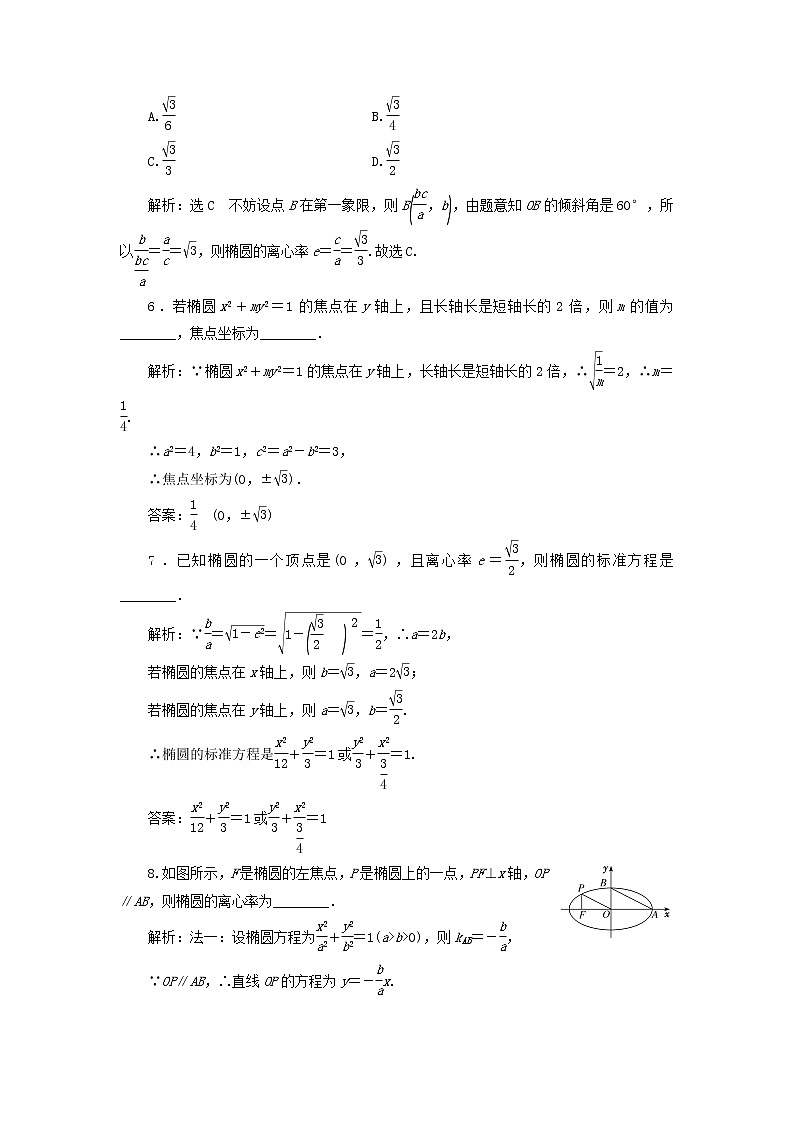 A.√3/6 B.√3/4
C.√3/3 D.√3/2
解析:选 C 不妨设点 B 在第一象限,则 B(bc/a,b),由题意知 OB 的倾斜角是 60°,所
以b/(bc/a)=a/c=√3,则椭圆的离心率 e=c/a=√3/3.故选 C.
6.若椭圆 x²+my²=1 的焦点在 y 轴上,且长轴长是短轴长的 2 倍,则 m 的值为
________,焦点坐标为________.
解析:∵椭圆 x²+my²=1 的焦点在 y 轴上,长轴长是短轴长的 2 倍,∴√(1/m)=2,∴m=
1/4.
∴a²=4,b²=1,c²=a²-b²=3,
∴焦点坐标为(0,±√3).
答案:1/4 (0,±√3)
7.已知椭圆的一个顶点是(0,√3),且离心率 e=√3/2,则椭圆的标准方程是
________.
解析:∵b/a=√(1-e²)=√(1-(√3/2)²)=1/2,∴a=2b,
若椭圆的焦点在 x 轴上,则 b=√3,a=2√3;
若椭圆的焦点在 y 轴上,则 a=√3,b=√3/2.
∴椭圆的标准方程是x²/12+y²/3=1 或y²/3+x²/(3/4)=1.
答案:x²/12+y²/3=1 或y²/3+x²/(3/4)=1
8.如图所示,F是椭圆的左焦点,P是椭圆上的一点,PF⊥x轴,OP
∥AB,则椭圆的离心率为________.
y
B
P
F O A x
解析:法一:设椭圆方程为x²/a²+y²/b²=1(a>b>0),则 kAB=-b/a,
∵OP∥AB,∴直线 OP 的方程为 y=-b/a x.